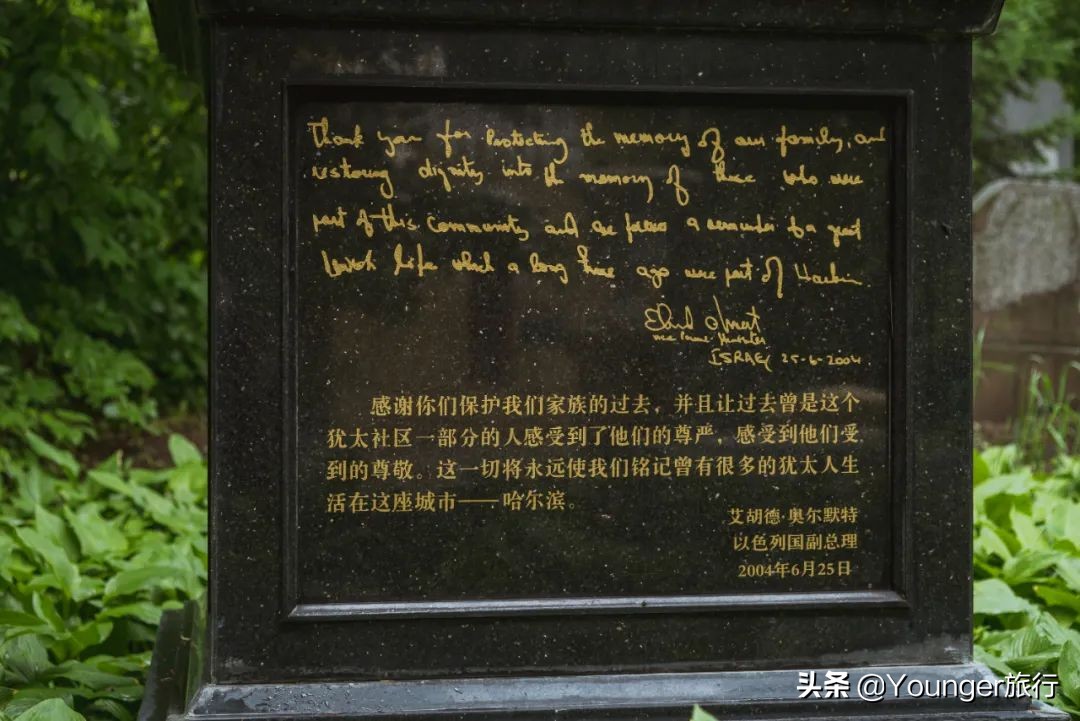 Thank you for Protecting the memory of our family, and
restoring dignity into the memory of those who were
part of this community and are forever a reminder to a great
Jewish life which a long time ago were part of Harbin
Ehud Olmert
Vice Prime Minister
ISRAEL 25-6-2004
感谢你们保护我们家族的过去，并且让过去曾是这个
犹太社区一部分的人感受到了他们的尊严，感受到他们受
到的尊敬。这一切将永远使我们铭记曾有很多的犹太人生
活在这座城市——哈尔滨。
艾胡德·奥尔默特
以色列国副总理
2004年6月25日
头条 @Younger旅行